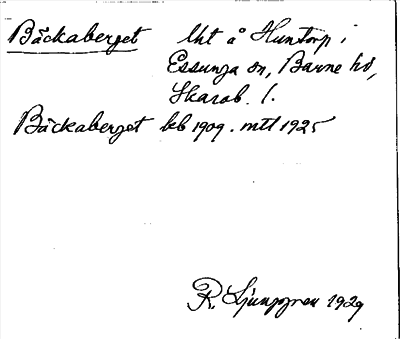 Bäckaberget lht å Huntorp i
Essunga sn, Barne hd,
Skarab. l.
Bäckaberget kb 1909. mtl 1925
R. Ljunggren 1929